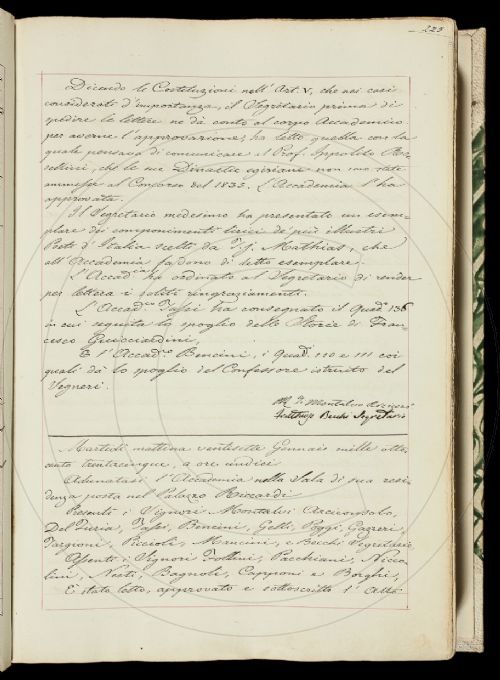 225
Dicendo le Costituzioni nell'Art. V, che nei casi
considerati d'importanza, il Segretario prima di
spedire le lettere ne dà conto al corpo Accademico
per averne l'approvazione; ha letto quella con la
quale pensava di comunicare il Prof. Ippolito Ro-
sellini, che le sue Dinastie egiziane non son state
ammesse al Concorso del 1835. L'Accademia l'ha
approvata.
Il Segretario medesimo ha presentato un esem-
plare dei componimenti lirici de' più illustri
Poeti d'Italia scelti da T. J. Mathias, che
all'Accademia fa dono di detto esemplare.
L'Accad.ia ha ordinato al Segretario di render
per lettera i soliti ringraziamenti.
L'Accad.o Tassi ha consegnato il Quad.o 136
in cui seguita lo spoglio delle Storie di Fran-
cesco Guicciardini,
E l'Accad.o Bencini, i Quad.i 110 e 111 coi
quali dà lo spoglio del Confessore istruito del
Segneri.
Montalvo Arciconsolo
Fruttuoso Becchi Segretario
Martedì mattina ventisette Gennaio mille otto-
cento trentacinque, a ore undici
Adunatasi l'Accademia nella Sala di sua resi-
denza posta nel Palazzo Riccardi
Presenti i Signori Montalvi Arciconsolo,
Del Furia, Tassi, Bencini, Gelli, Poggi, Gazzeri,
Targioni, Piccioli, Mancini, e Becchi Segretario
Assenti i Signori Follini, Pacchiani, Nicco-
lini, Nesti, Bagnoli, Capponi e Borghi,
È stato letto, approvato e sottoscritto l'Atto